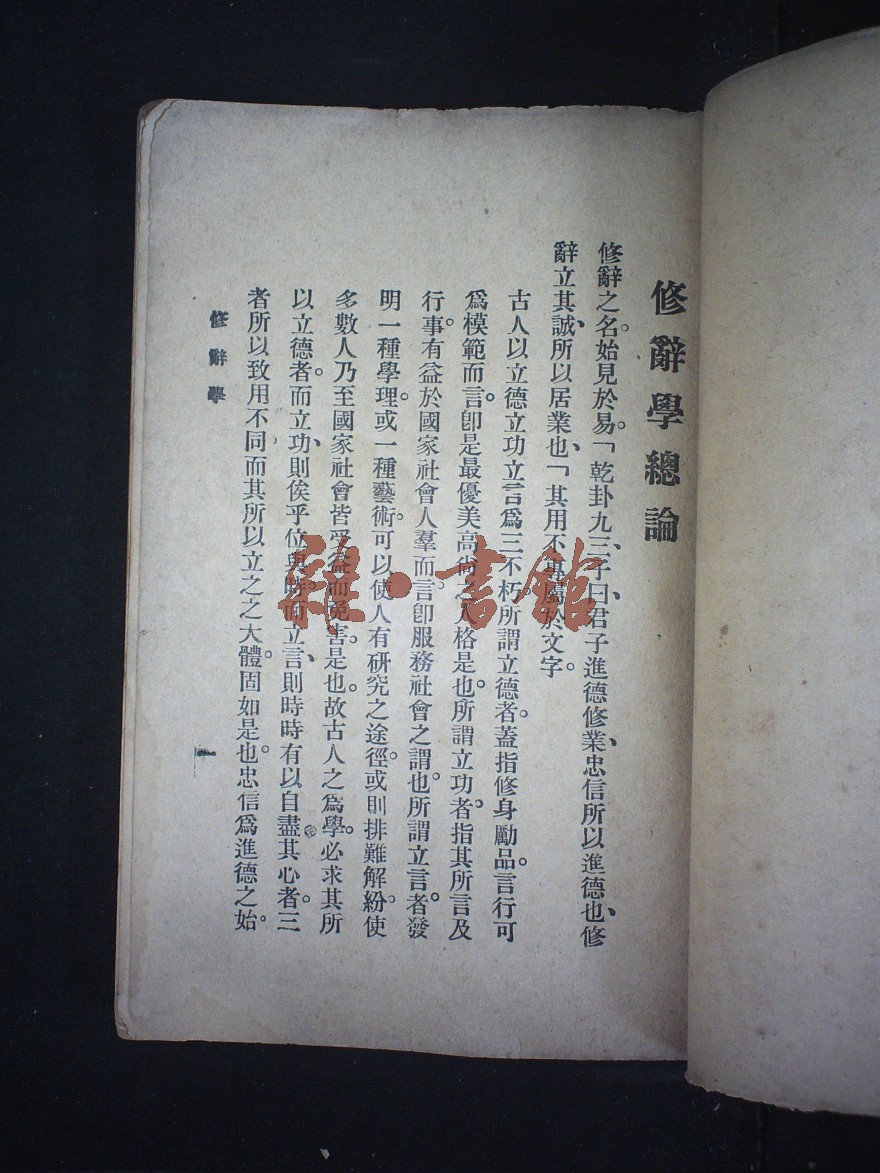 修辭學總論
修辭之名。始見於易。「乾卦九三、子曰、君子進德修業、忠信所以進德也、修
辭立其誠、所以居業也、「其用不專屬於文字。
古人以立德立功立言爲三不朽。所謂立德者。蓋指修身勵品。言行可
爲模範而言。卽是最優美高尚之人格是也。所謂立功者。指其所言及
行事。有益於國家社會人羣而言。卽服務社會之謂也。所謂立言者。發
明一種學理。或一種藝術。可以使人有研究之途徑。或則排難解紛。使
多數人乃至國家社會皆受益而免害。是也。故古人之爲學。必求其所
以立德者。而立功、則俟乎位與時。而立言、則時時有以自盡其心者。三
者所以致用不同。而其所以立之之大體。固如是也。忠信爲進德之始。
修辭學
一
雜·書館